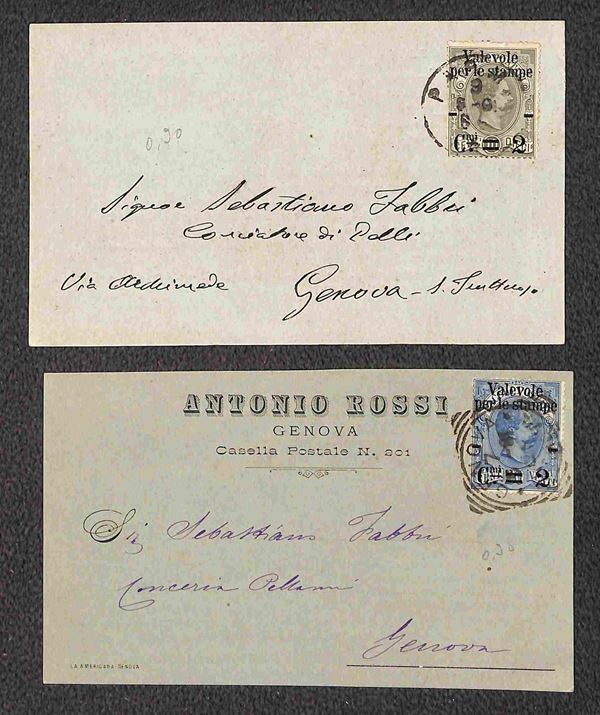 Valevole
per le stampe
Cmi 2
0,90
Signor Sebastiano Fabbri
Conciatore di Pelli
Via Archimede
Genova - S.
Valevole
per le stampe
Cmi 2
ANTONIO ROSSI
GENOVA
Casella Postale N. 201
0,90
Sig Sebastiano Fabbri
Conceria Pellami
Genova
LA AMERICANA-GENOVA